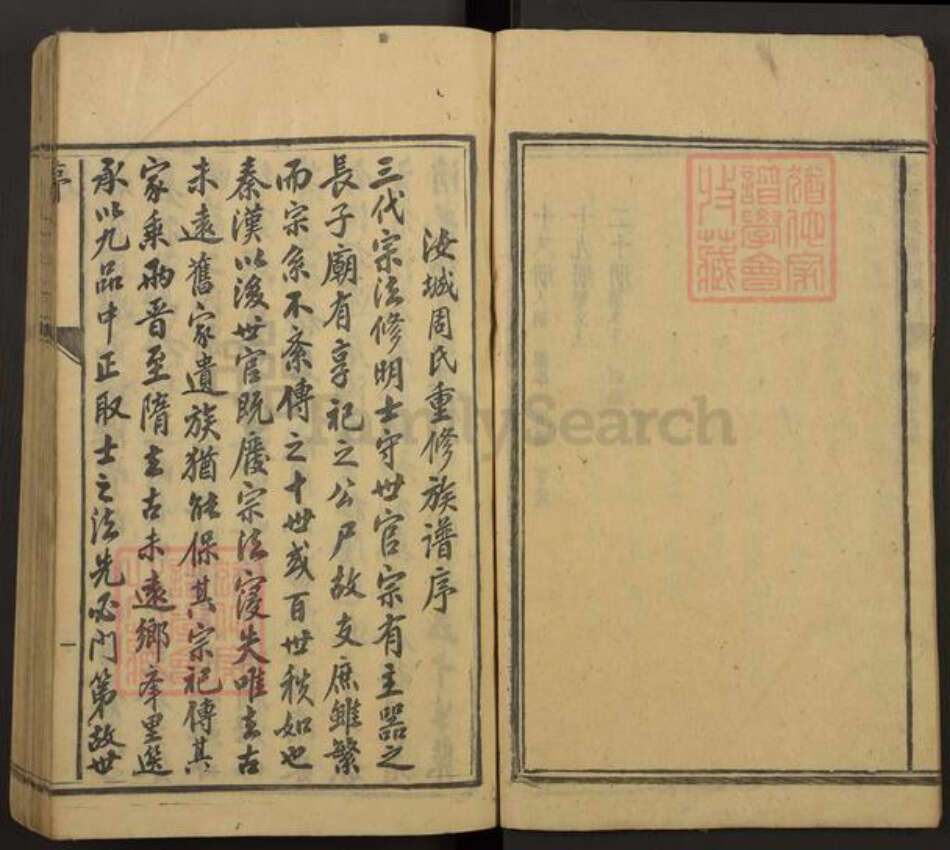 汝城周氏重修族譜序
三代宗法修明士守世官宗有主器之
長子廟有享祀之公尸故支庶雖繁
而宗系不紊傳之十世或百世秩如也
秦漢以後世官既廢宗法寖失唯去古
未遠舊家遺族猶能保其宗祀傳其
家乘兩晋至隋去古未遠鄉舉里選
承以九品中正取士之法先必門第故世
序
一
譜學會
收藏
FamilySearch